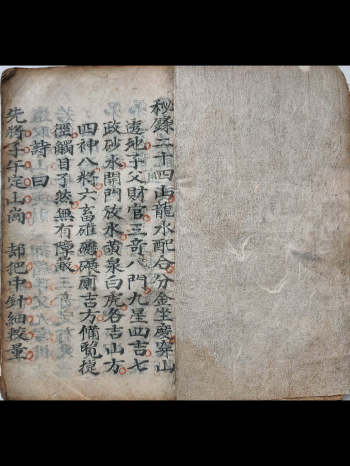 秘錄二十四山龍水配合分金坐度穿山
透地子父財官三奇八門九星四吉七
政砂水開門放水黃泉白虎各吉山方
四神八將六畜碓磑碾廁吉方備覽捷
徑觸目了然無有障蔽
詩曰
先將子午定山崗 却把中針細較量